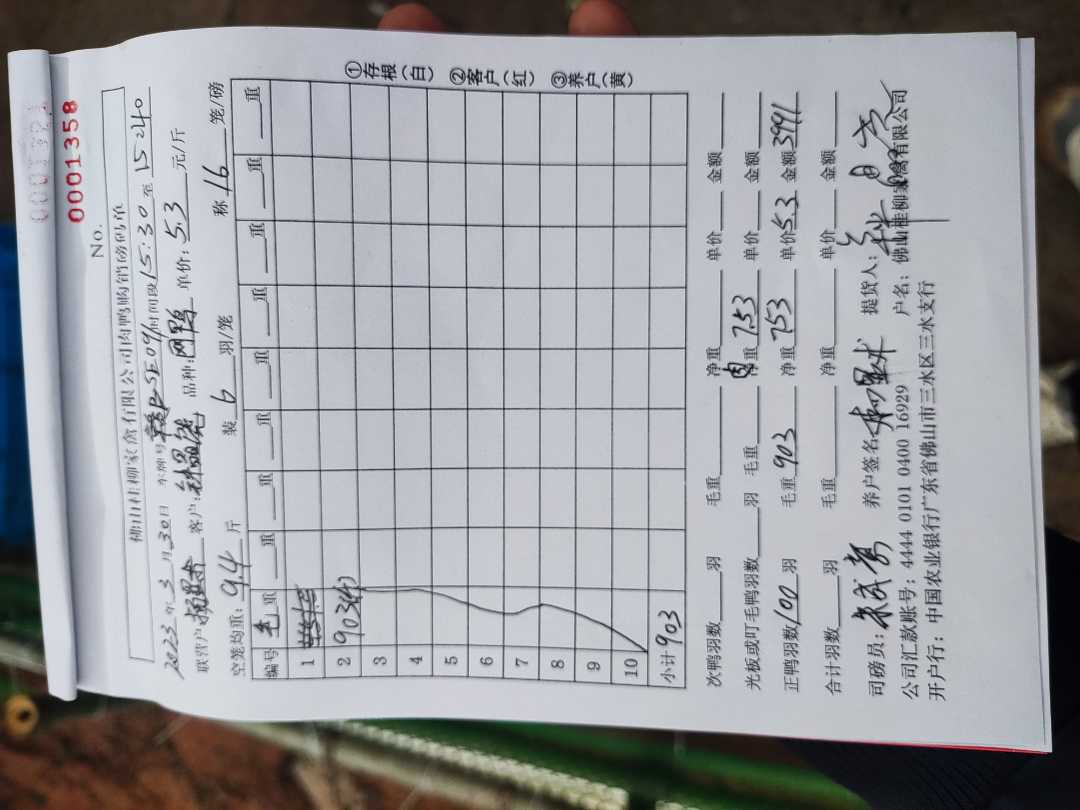 0001321
No. 0001358
佛山桂柳家禽有限公司肉鸭购销磅码单
2023年3月30日 车牌号 时间段15:30至15:40
联营户 客户: 品种: 单价:5.3元/斤
空笼均重:9.4斤 装6羽/笼 称16笼/磅
编号 毛重 重 重 重 重 重 重 重 重
1
2 903
3
4
5
6
7
8
9
10
小计 903
①存根(白) ②客户(红) ③养户(黄)
次鸭羽数 羽 毛重 净重 单价 金额
光板或叮毛鸭羽数 羽 毛重 净重753 单价 金额
正鸭羽数100羽 毛重903 净重753 单价5.3 金额3991
合计羽数 羽 毛重 净重 单价 金额
司磅员: 养户签名 提货人:
公司汇款账号:4444 0101 0400 16929 户名:佛山桂柳家禽有限公司
开户行:中国农业银行广东省佛山市三水区三水支行